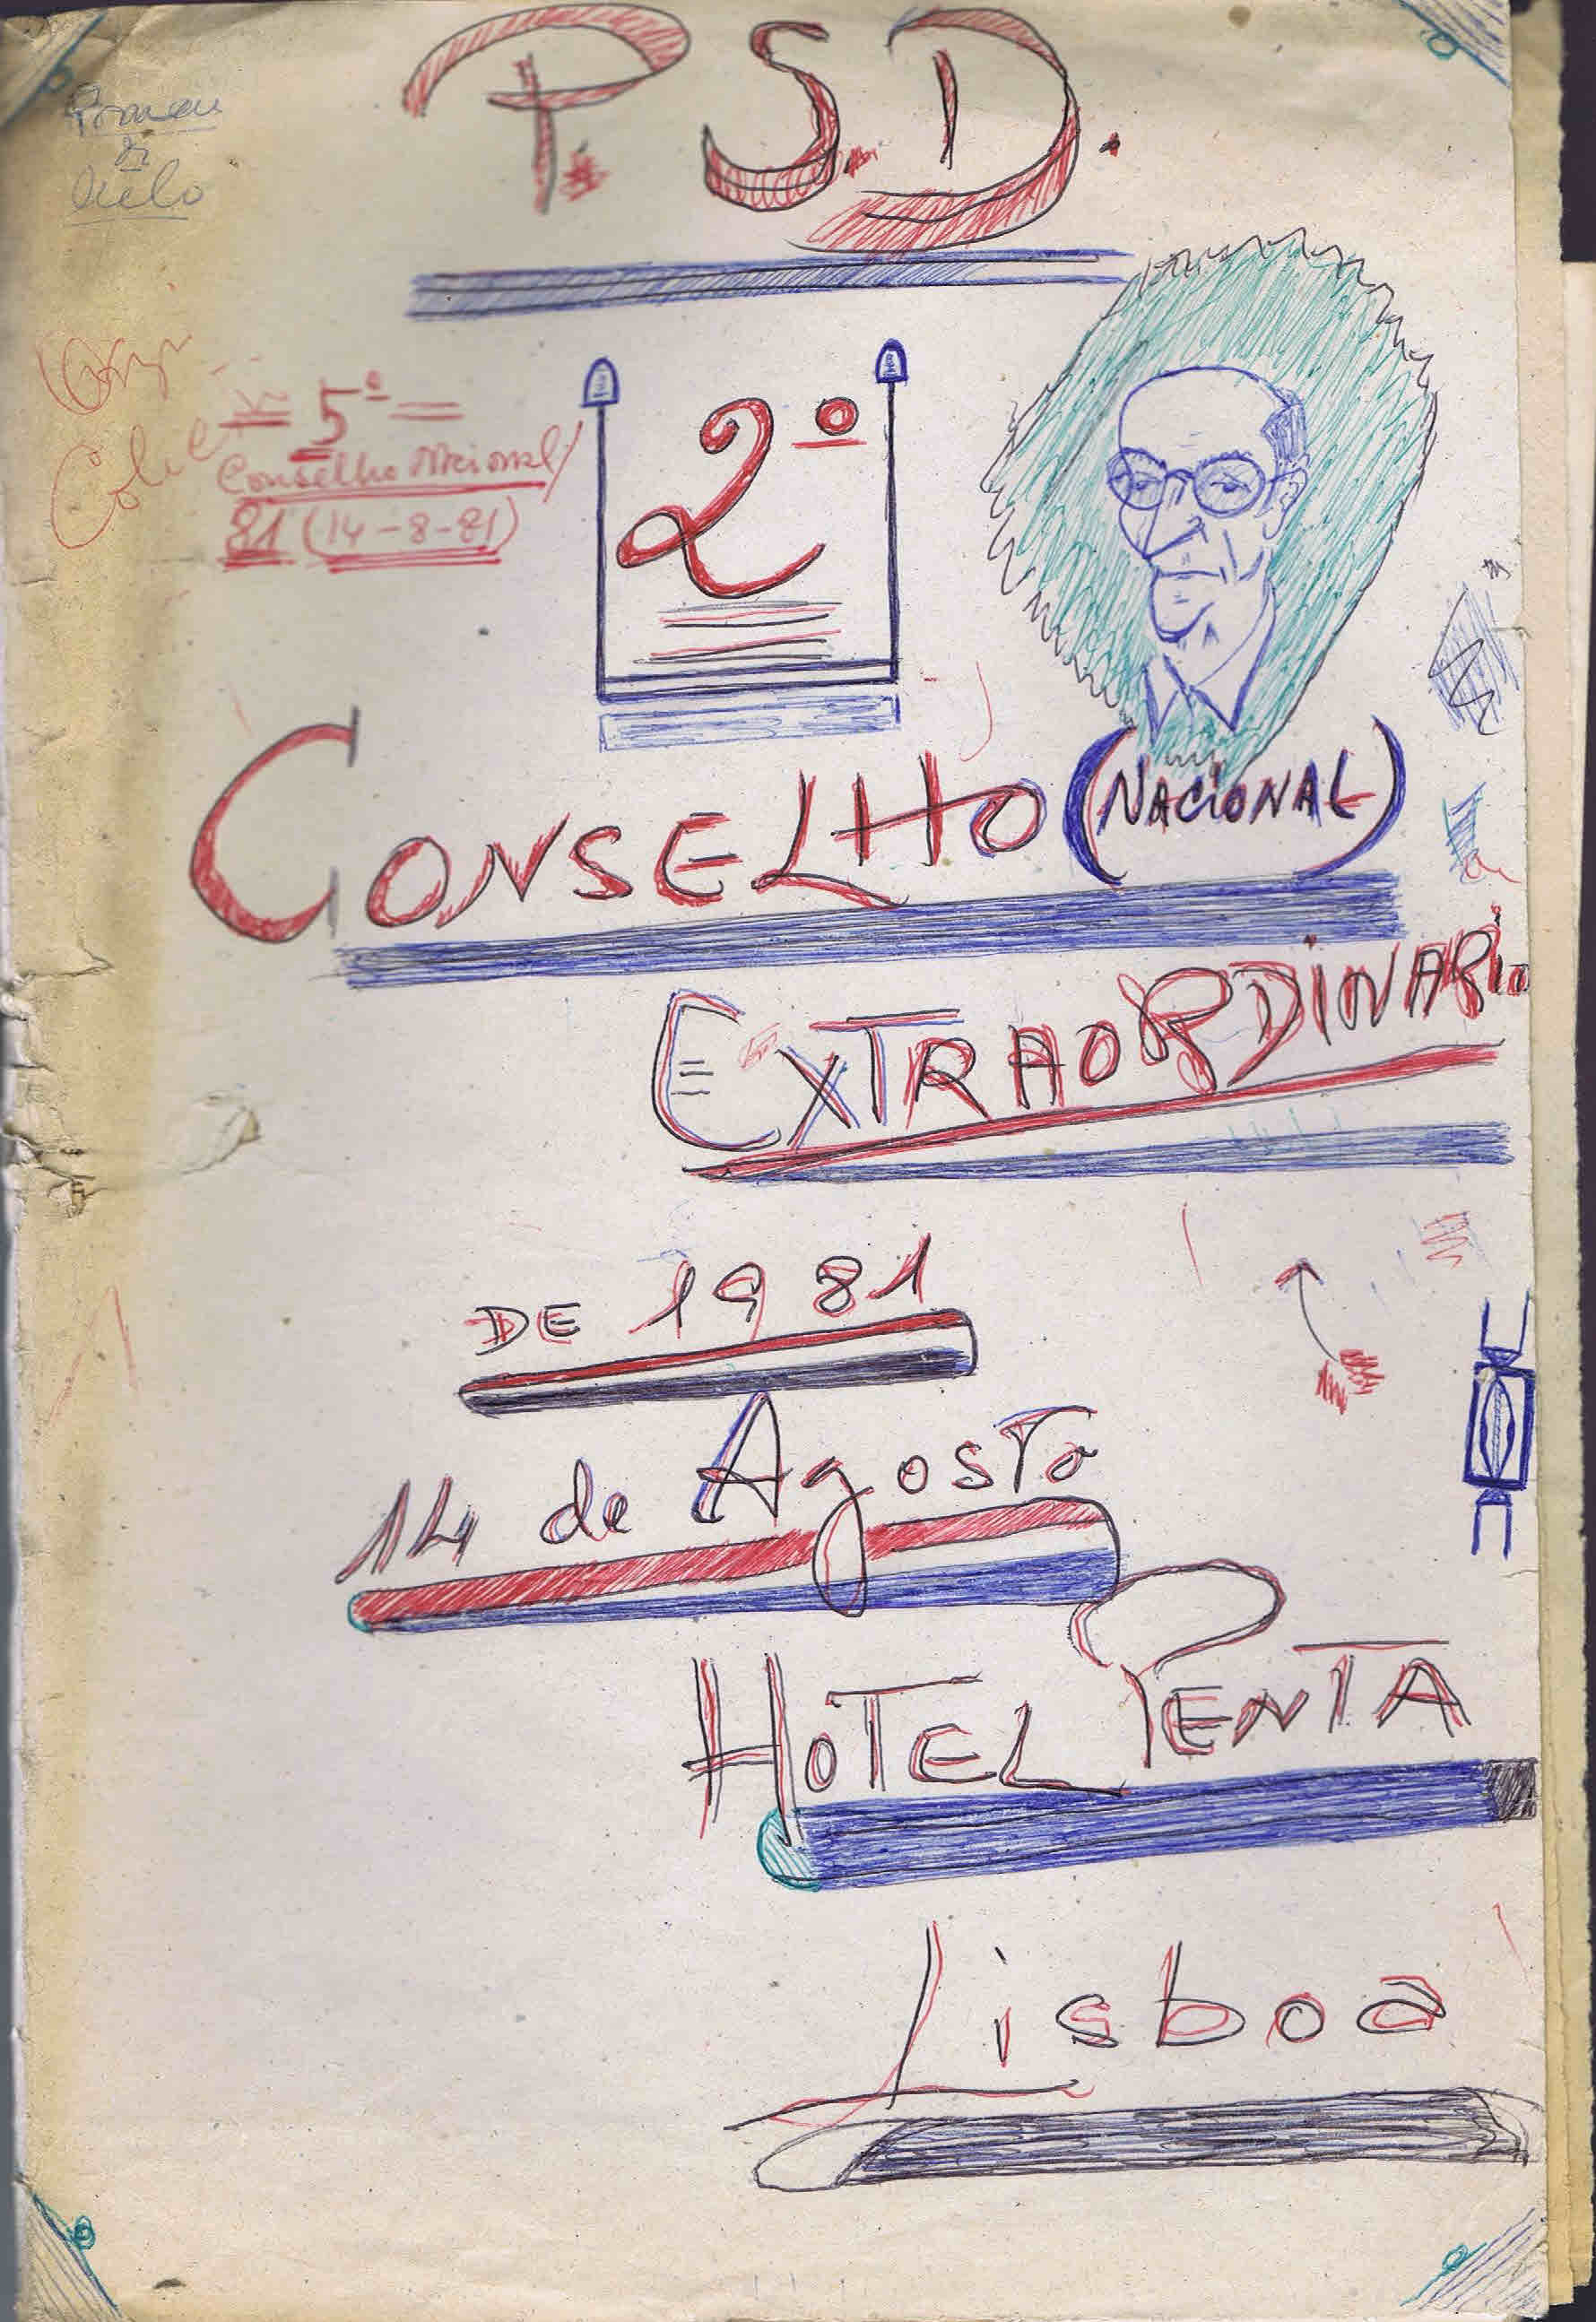 P.S.D.
= 5º =
Conselho Nacional/
81 (14-8-81)
2º
CONSELHO (NACIONAL)
EXTRAORDINARio
DE 1981
14 de Agosto
HOTEL PENTA
Lisboa